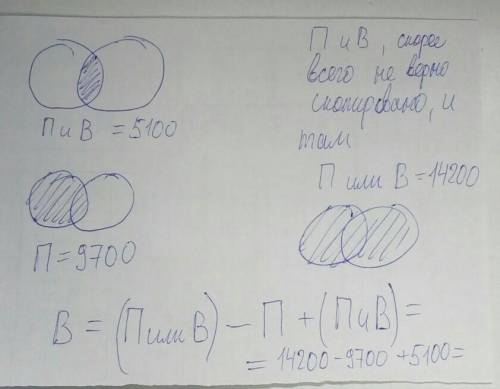 П и В = 5100
П = 9700
П и В, скорее
всего не верно
скопировано, и
там
П или В = 14200
В = (П или В) - П + (П и В) =
= 14200 - 9700 + 5100 =